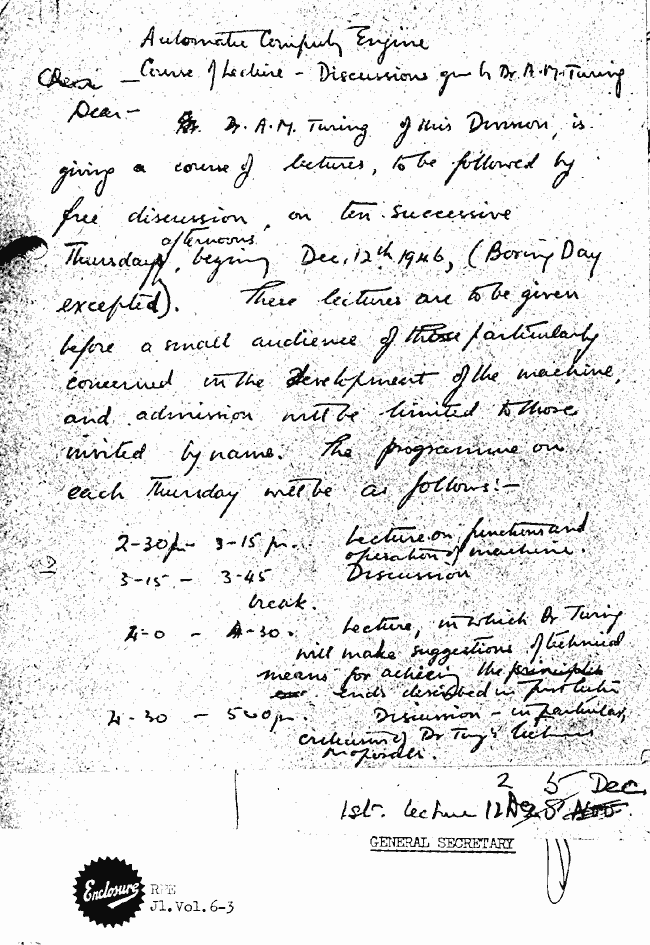 Automatic Computing Engine
Course of Lecture - Discussions given by Dr. A.M. Turing
Dear -
Dr. A.M. Turing of this Division, is
giving a course of lectures, to be followed by
free discussion, on ten successive
afternoons
Thursday, beginning Dec. 12th 1946, (Boxing Day
excepted). These lectures are to be given
before a small audience of those particularly
concerned in the development of the machine,
and admission will be limited to those
invited by name. The programme on
each Thursday will be as follows:-
2-30p - 3-15 p.m. Lecture on functions and
operation of machine.
3-15 - 3-45 Discussion
break.
4-0 - 4-30. Lecture, in which Dr Turing
will make suggestions of technical
means for achieving the principles
ends described in first lecture
4-30 - 5-00 p.m. Discussion - in particular,
criticism of Dr Turing's technical
proposals.
2 5 Dec
1st. lecture 12
GENERAL SECRETARY
Enclosure
Jl.Vol.6-3